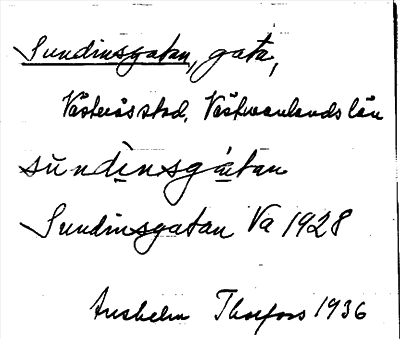 Sundinsgatan, gata,
Västerås stad, Västmanlands län
sùndìnsgɑ̀tan
Sundinsgatan Va 1928
Anshelm Thorfors 1936